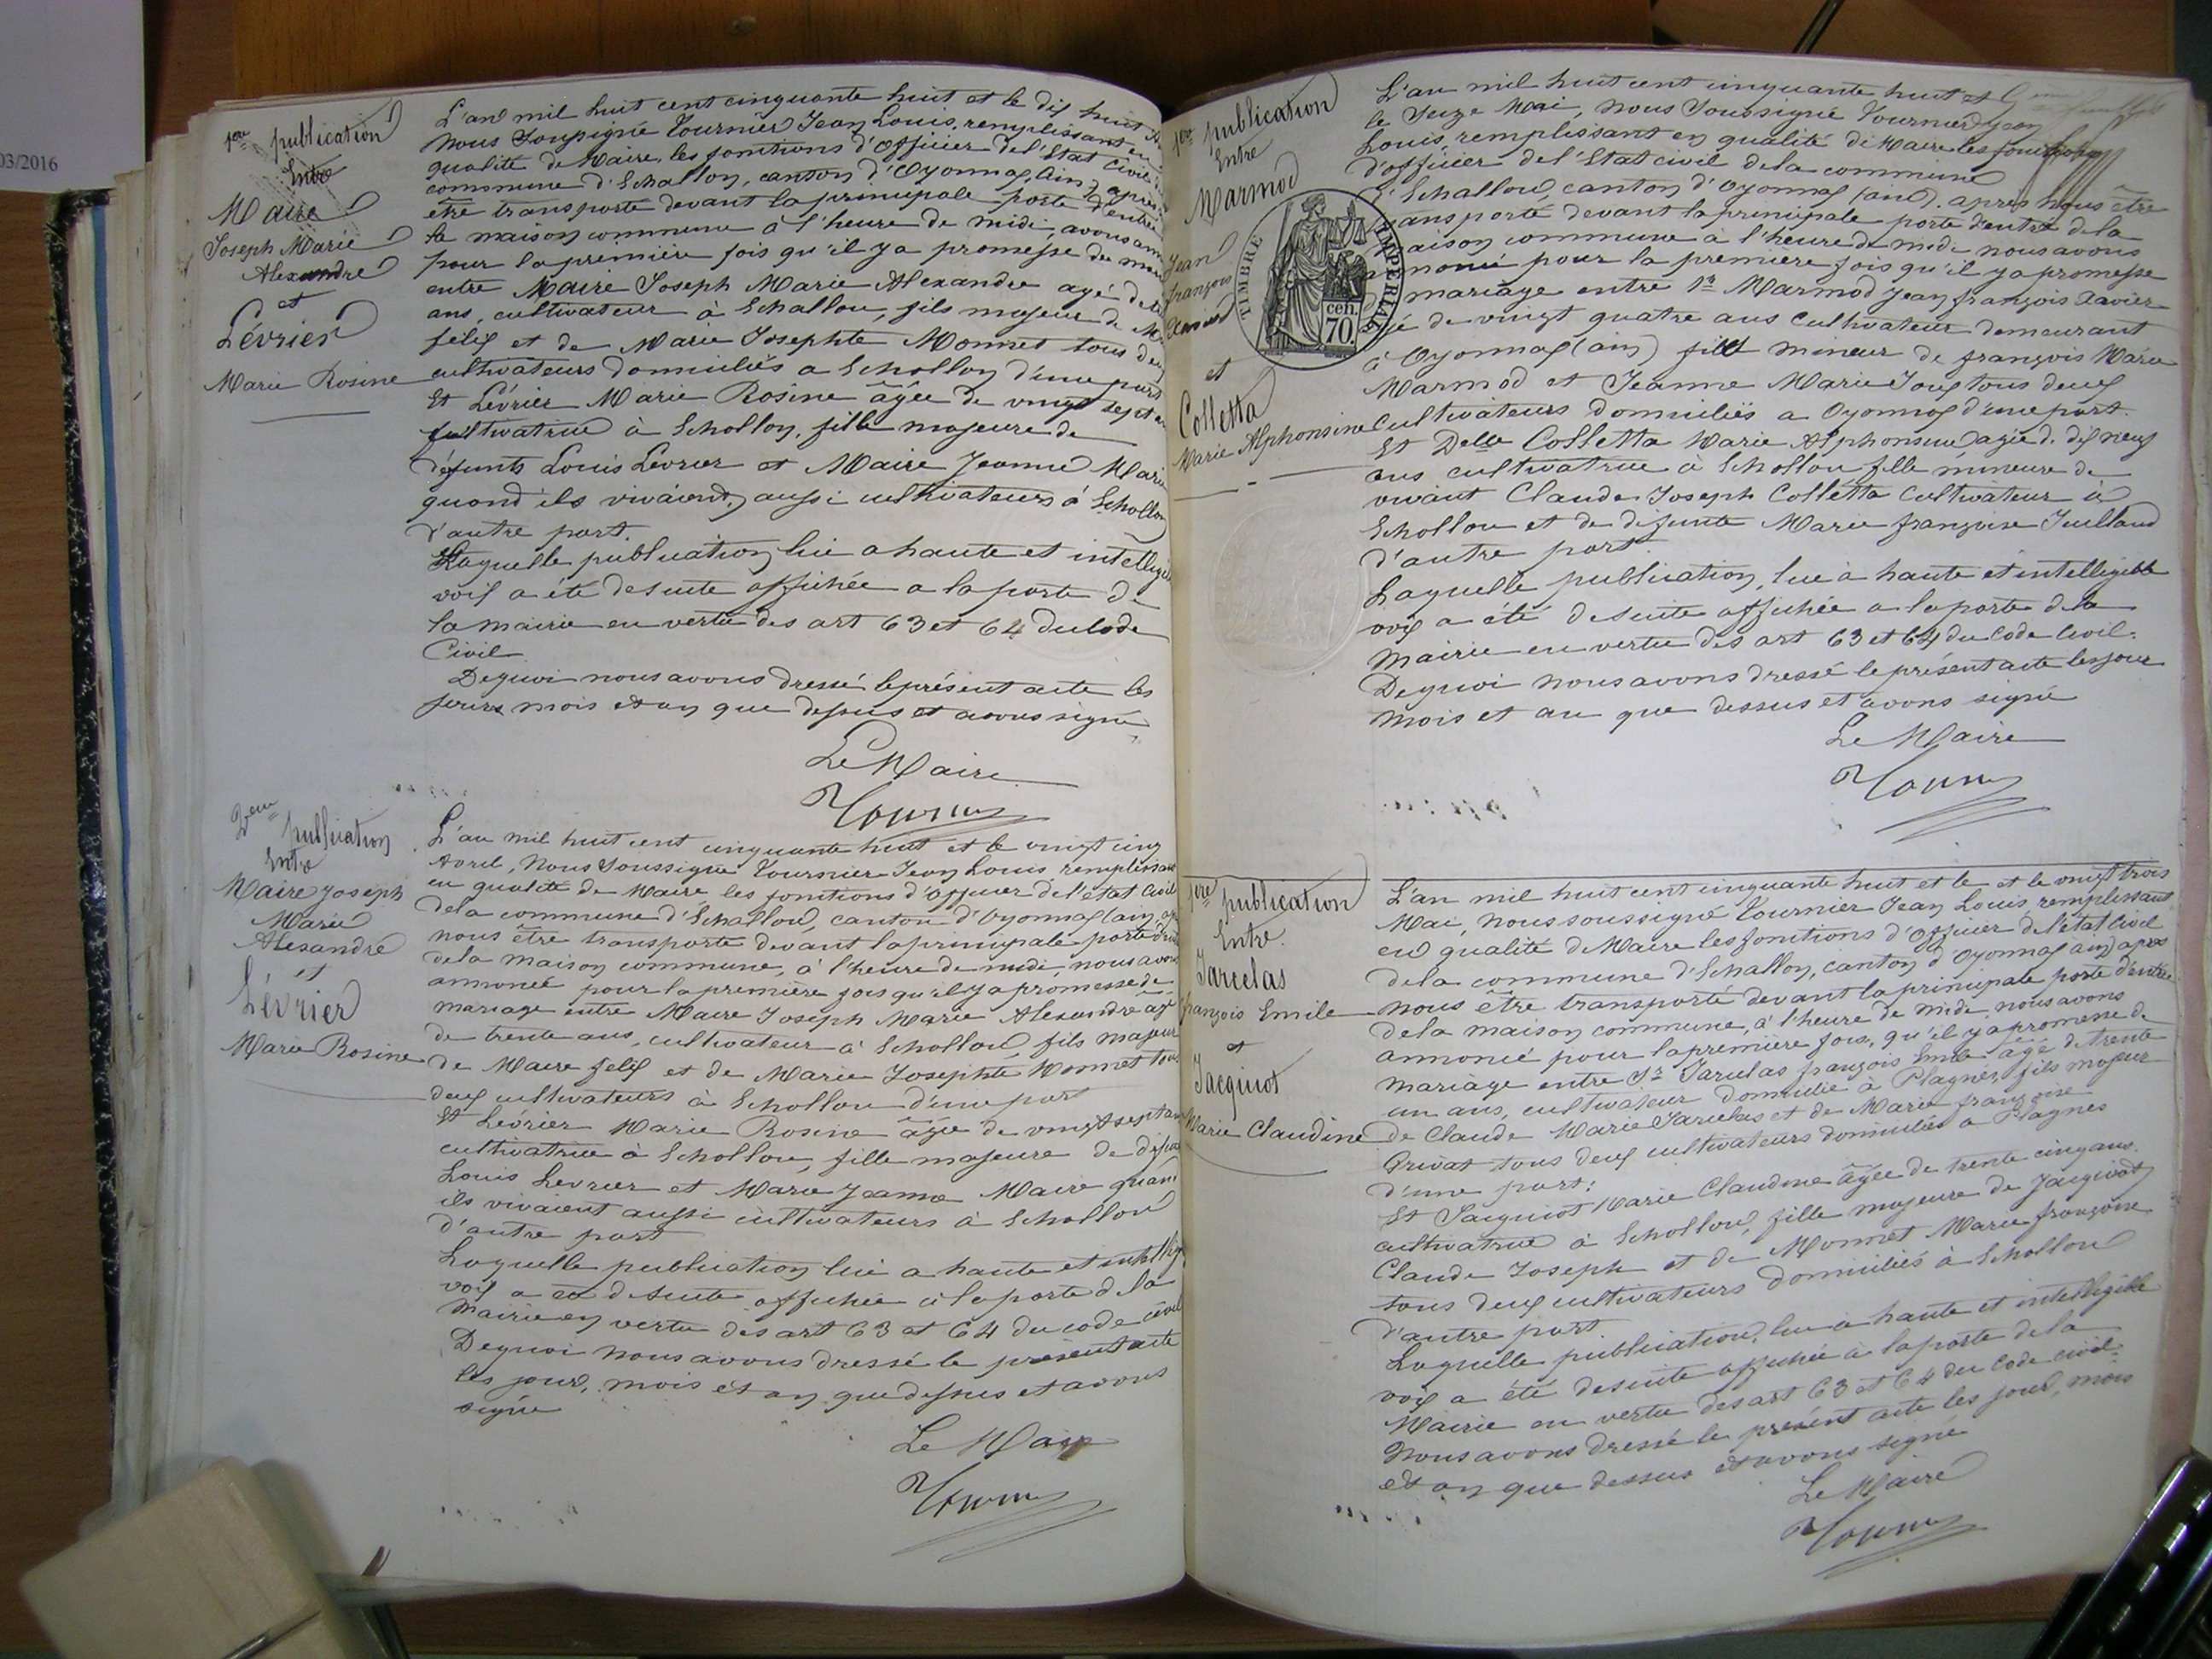 03/2016
1ere publication
Entre
Maire
Joseph Marie
Alexandre
et
Lévrier
Marie Rosine
L'an mil huit cent cinquante huit et le dix huit
nous soussigné Tournier Jean Louis, remplissant en
qualité de Maire, les fonctions d'Officier de l'Etat Civil
commune d'Echallon, canton d'Oyonnax, (ain) après
être transporté devant la principale porte d'entrée
la maison commune à l'heure de midi, avons
pour la première fois qu'il y a promesse de
entre Maire Joseph Marie Alexandre agé de
ans, cultivateur à Echallon, fils majeur de
félix et de Marie Josephte Monnet tous deux
cultivateurs domiciliés a Echallon d'une part
Et Lévrier Marie Rosine âgée de vingt sept
cultivatrice à Echallon, fille majeure de
défunts Louis Levrier et Maire Jeanne Marie
quand ils vivaient, aussi cultivateurs à Echallon
d'autre part.
Laquelle publication lue a haute et intelligible
voix a été desuite affichée a la porte de
la mairie en vertu des art 63 et 64 du Code
Civil
Dequoi nous avons dressé le présent acte les
jours mois et an que dessus et avons signé
Le Maire
Tournier
2eme publication
Entre
Maire Joseph
Marie
Alexandre
et
Lévrier
Marie Rosine
L'an mil huit cent cinquante huit et le vingt cinq
Avril, Nous Soussigné Tournier Jean Louis remplissant
en qualité de Maire les fonctions d'officier de l'état Civil
de la commune d'Echallon, canton d'Oyonnax (ain)
nous être transporté devant la principale porte
de la maison commune, à l'heure de midi, nous avons
annoncé pour la première fois qu'il y a promesse de
mariage entre Maire Joseph Marie Alexandre agé
de trente ans, cultivateur à Echallon, fils majeur
de Maire félix et de Marie Josephte Monnet tous
deux cultivateurs à Echallon d'une part
Et Lévrier Marie Rosine âgée de vingt sept ans
cultivatrice à Echallon, fille majeure de
Louis Levrier et Marie Jeanne Maire quand
ils vivaient aussi cultivateurs à Echallon
d'autre part
Laquelle publication lue a haute et
voix a été de suite affichée à la porte de la
Mairie en vertu des art 63 et 64 du code civil
Dequoi nous avons dressé le présent acte
les jour, mois et an que dessus et avons
signé
Le Maire
Tournier
1ere publication
Entre
Marmod
Jean
françois
Xavier
et
Colletta
Marie Alphonsine
TIMBRE IMPERIAL
cen.
70.
L'an mil huit cent cinquante huit et
le Seize Mai, nous Soussigné Tournier Jean
Louis, remplissant en qualité de Maire les fonctions
d'officier de l'Etat civil de la commune
d'Echallon, canton d'Oyonnax (ain). apres nous être
transporté devant la principale porte d'entrée de la
maison commune à l'heure de midi nous avons
annoncé pour la premiere fois qu'il y a promesse
mariage entre Sr Marmod Jean françois Xavier
agé de vingt quatre ans Cultivateur demeurant
à Oyonnax (ain) fils mineur de françois Marie
Marmod et Jeanne Marie tous deux
Cultivateurs domiciliés a Oyonnax d'une part.
Et Delle Colletta Marie Alphonsine agée de dix neuf
ans cultivatrice à Echallon fille mineure de
vivant Claude Joseph Colletta Cultivateur à
Echallon et de defunte Marie françoise Juilland
d'autre part
Laquelle publication, lue à haute et intelligible
voix a été desuite affichée a la porte de la
Mairie en vertu des art 63 et 64 du Code Civil.
Dequoi nous avons dressé le présent acte les jour
mois et an que dessus et avons signé
Le Maire
Tournier
1ere publication
Entre
Jarclas
françois Emile
et
Jacquiot
Marie Claudine
L'an mil huit cent cinquante huit et le et le vingt trois
Mai, nous soussigné Tournier Jean Louis remplissant
en qualité de Maire les fonctions d'Officier de l'état civil
de la commune d'Echallon, canton d'Oyonnax ain) apres
nous être transporté devant la principale porte d'entrée
de la maison commune, à l'heure de midi, nous avons
annoncé pour la premiere fois, qu'il y a promesse de
mariage entre Sr françois Emile âgé de trente
un ans, cultivateur domicilié à Plagnes, fils majeur
de Claude Marie et de Marie françoise
Privat tous deux cultivateurs domiciliés a Plagnes
d'une part:
Et Jacquiot Marie Claudine âgée de trente cinq ans.
cultivatrice à Echallon, fille majeure de Jacquiot
Claude Joseph et de Monnet Marie françoise
tous deux cultivateurs domiciliés à Echallon
d'autre part.
Laquelle publication, lue a haute et intelligible
voix a été desuite affichée à la porte de la
Mairie en vertu des art 63 et 64 du Code civil.
Nous avons dressé le présent acte les jour, mois
et an que dessus et avons signé
Le Maire
Tournier